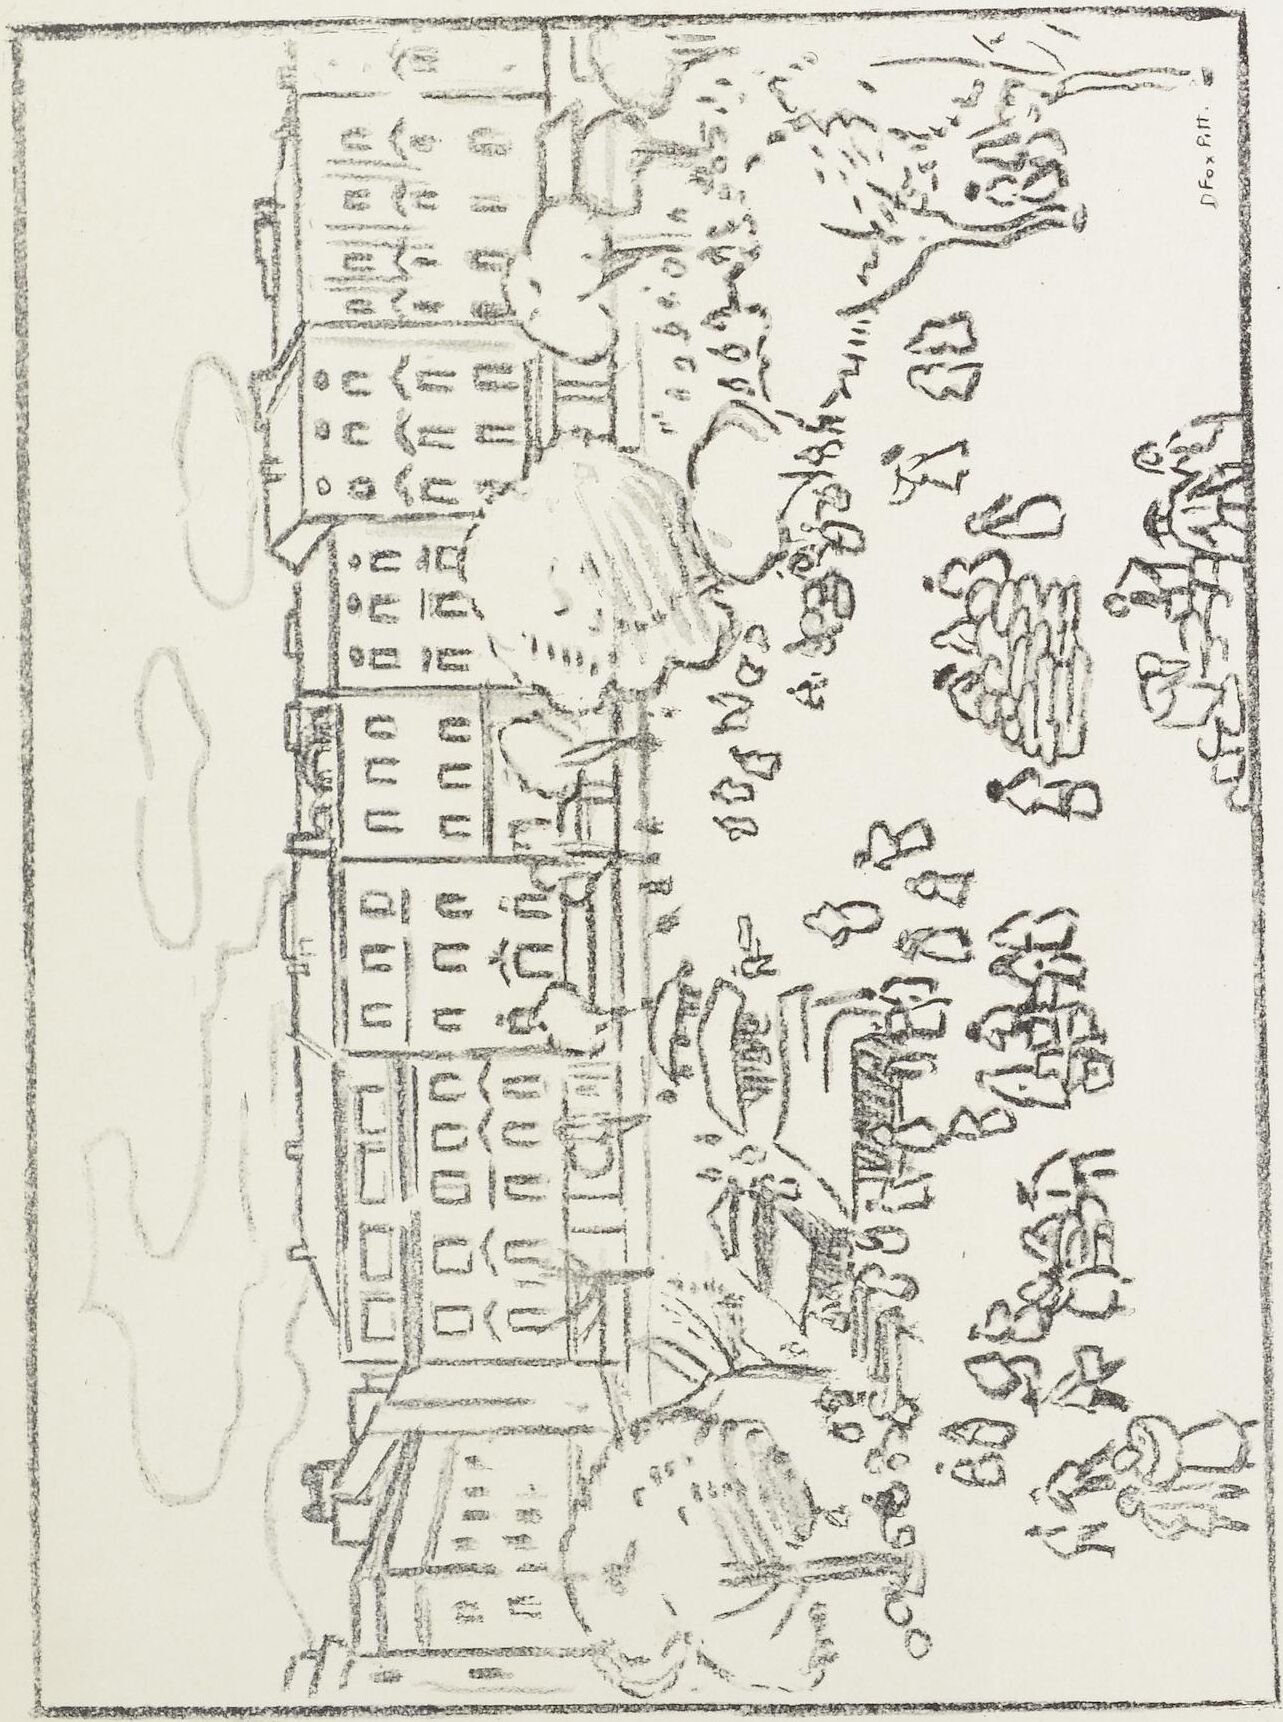 D Fox Pitt.